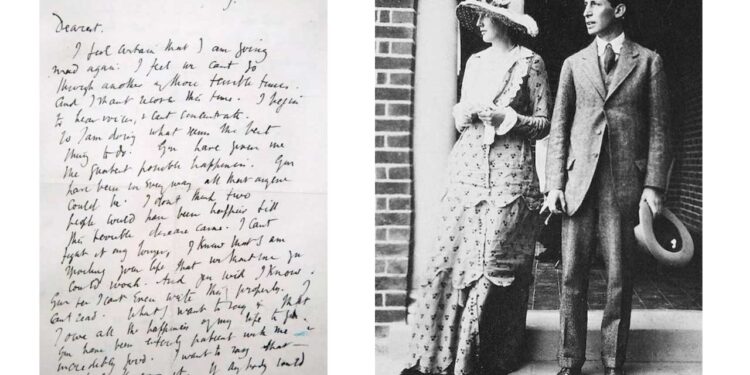 Dearest,
I feel certain that I am going
mad again: I feel we cant go
through another of those terrible times.
And I shant recover this time. I begin
to hear voices, & cant concentrate.
So I am doing what seems the best
thing to do. You have given me
the greatest possible happiness. You
have been in every way all that anyone
could be. I dont think two
people could have been happier till
this terrible disease came. I cant
fight it any longer, I know that I am
spoiling your life, that without me you
could work. And you will I know.
You see I cant even write this properly. I
cant read. What I want to say is that
I owe all the happiness of my life to you.
You have been entirely patient with me &
incredibly good. I want to say that—
If anybody could